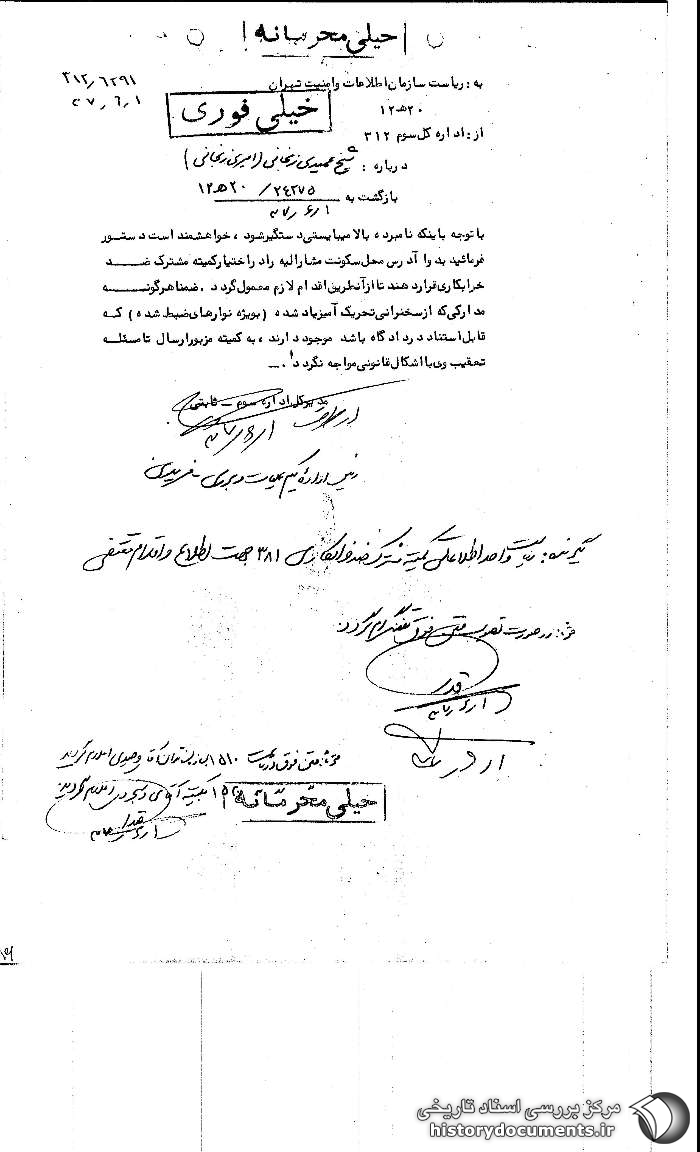 خیلی محرمانه
به: ریاست سازمان اطلاعات و امنیت تهران
۳۱۲٫۶۲۹۱
۲۰هـ۱۲
۳۷٫۶٫۱
خیلی فوری
از: اداره کل سوم ۳۱۲
درباره: شیخ عمیدی زنجانی (امیری زنجانی)
بازگشت به ۲۴۲۷۵/ ۲۰هـ۱۲
با توجه باینکه نامبرده بالا میبایستی دستگیر شود، خواهشمند است دستور
فرمائید بدوا آدرس محل سکونت مشارالیه را در اختیار کمیته مشترک ضد
خرابکاری قرار دهند تا از آنطریق اقدام لازم معمول گردد. ضمنا هرگونه
مدارکی که از سخنرانی تحریک آمیز یاد شده (بویژه نوارهای ضبط شده) که
قابل استناد در دادگاه باشد موجود دارند، به کمیته مزبور ارسال تا مسئله
تعقیب وی با اشکال قانونی مواجه نگردد.
مدیر کل اداره سوم - ثابتی
رئیس اداره یکم عملیات و بررسی
گیرنده: ریاست واحد اطلاعاتی کمیته مشترک ضد خرابکاری ۳۸۱ جهت اطلاع و اقدام مقتضی
در صورت تصویب متن فوق تلگرام گردد
متن فوق در ساعت ۱۵۱۰ اعلام گردید
خیلی محرمانه
مرکز بررسی اسناد تاریخی
historydocuments.ir